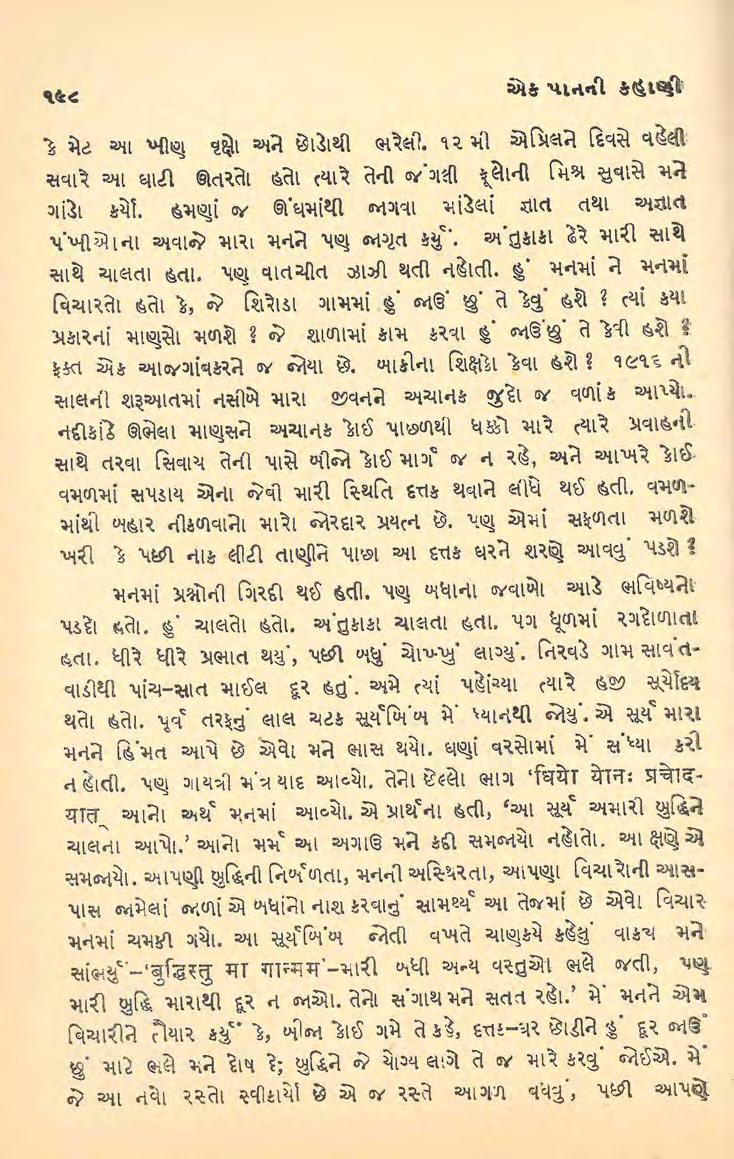 ૧૯૮
એક પાનની કહાણી
કે મેટ આ ખીણ વૃક્ષો અને છોડોથી ભરેલી. ૧૨ મી એપ્રિલને દિવસે વહેલી
સવારે આ ઘાટી ઊતરતો હતો ત્યારે તેની જંગલી ફૂલોની મિશ્ર સુવાસે મને
ગાંડો કર્યો. હમણાં જ ઊંઘમાંથી જાગવા માંડેલાં જ્ઞાત તથા અજ્ઞાત
પંખીઓના અવાજે મારા મનને પણ જાગૃત કર્યું. અંતુકાકા ઢેરે મારી સાથે
સાથે ચાલતા હતા. પણ વાતચીત ઝાઝી થતી નહોતી. હું મનમાં ને મનમાં
વિચારતો હતો કે, જે શિરોડા ગામમાં હું જાઉં છું તે કેવું હશે ? ત્યાં કયા
પ્રકારનાં માણસો મળશે ? જે શાળામાં કામ કરવા હું જાઉં છું તે કેવી હશે ?
ફક્ત એક આજગાંવકરને જ જોયા છે. બાકીના શિક્ષકો કેવા હશે ? ૧૯૧૬ ની
સાલની શરૂઆતમાં નસીબે મારા જીવનને અચાનક જુદો જ વળાંક આપ્યો.
નદીકાંઠે ઊભેલા માણસને અચાનક કોઈ પાછળથી ધક્કો મારે ત્યારે પ્રવાહની
સાથે તરવા સિવાય તેની પાસે બીજો કોઈ માર્ગ જ ન રહે, અને આખરે કોઈ
વમળમાં સપડાય એના જેવી મારી સ્થિતિ દત્તક થવાને લીધે થઈ હતી. વમળ-
માંથી બહાર નીકળવાનો મારો જોરદાર પ્રયત્ન છે. પણ એમાં સફળતા મળશે
ખરી કે પછી નાક લીટી તાણીને પાછા આ દત્તક ઘરને શરણે આવવું પડશે ?
મનમાં પ્રશ્નોની ગિરદી થઈ હતી. પણ બધાના જવાબો આડે ભવિષ્યનો
પડદો હતો. હું ચાલતો હતો. અંતુકાકા ચાલતા હતા. પગ ધૂળમાં રગદોળાતા
હતા. ધીરે ધીરે પ્રભાત થયું, પછી બધું ચોખ્ખું લાગ્યું. નિરવડે ગામ સાવંત-
વાડીથી પાંચ-સાત માઈલ દૂર હતું. અમે ત્યાં પહોંચ્યા ત્યારે હજી સૂર્યોદય
થતો હતો. પૂર્વ તરફનું લાલ ચટક સૂર્યબિંબ મેં ધ્યાનથી જોયું. એ સૂર્ય મારા
મનને હિંમત આપે છે એવો મને ભાસ થયો. ઘણાં વરસોમાં મેં સંધ્યા કરી
નહોતી. પણ ગાયત્રી મંત્ર યાદ આવ્યો. તેનો છેલ્લો ભાગ ‘ધિયો યોનઃ પ્રચોદ-
यात् આનો અર્થ મનમાં આવ્યો. એ પ્રાર્થના હતી, ‘આ સૂર્ય અમારી બુદ્ધિને
ચાલના આપો.’ આનો મર્મ આ અગાઉ મને કદી સમજાયો નહોતો. આ ક્ષણે એ
સમજાયો. આપણી બુદ્ધિની નિર્બળતા, મનની અસ્થિરતા, આપણા વિચારોની આસ-
પાસ જામેલાં જાળાં એ બધાંનો નાશ કરવાનું સામર્થ્ય આ તેજમાં છે એવો વિચાર
મનમાં ચમકી ગયો. આ સૂર્યબિંબ જોતી વખતે ચાણક્યે કહેલું વાક્ય મને
સાંભર્યું-‘बुद्धिस्तु मा गान्मम’-મારી બધી અન્ય વસ્તુઓ ભલે જતી, પણ
મારી બુદ્ધિ મારાથી દૂર ન જાઓ. તેનો સંગાથ મને સતત રહો.’ મેં મનને એમ
વિચારીને તૈયાર કર્યું કે, બીજા કોઈ ગમે તે કહે, દત્તક-ઘર છોડીને હું દૂર જાઉં
છું માટે ભલે મને દોષ દે; બુદ્ધિને જે યોગ્ય લાગે તે જ મારે કરવું જોઈએ. મેં
જે આ નવો રસ્તો સ્વીકાર્યો છે એ જ રસ્તે આગળ વધવું, પછી આપણે